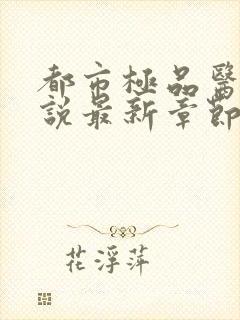 都市極品醫
說最新章節
花浮萍